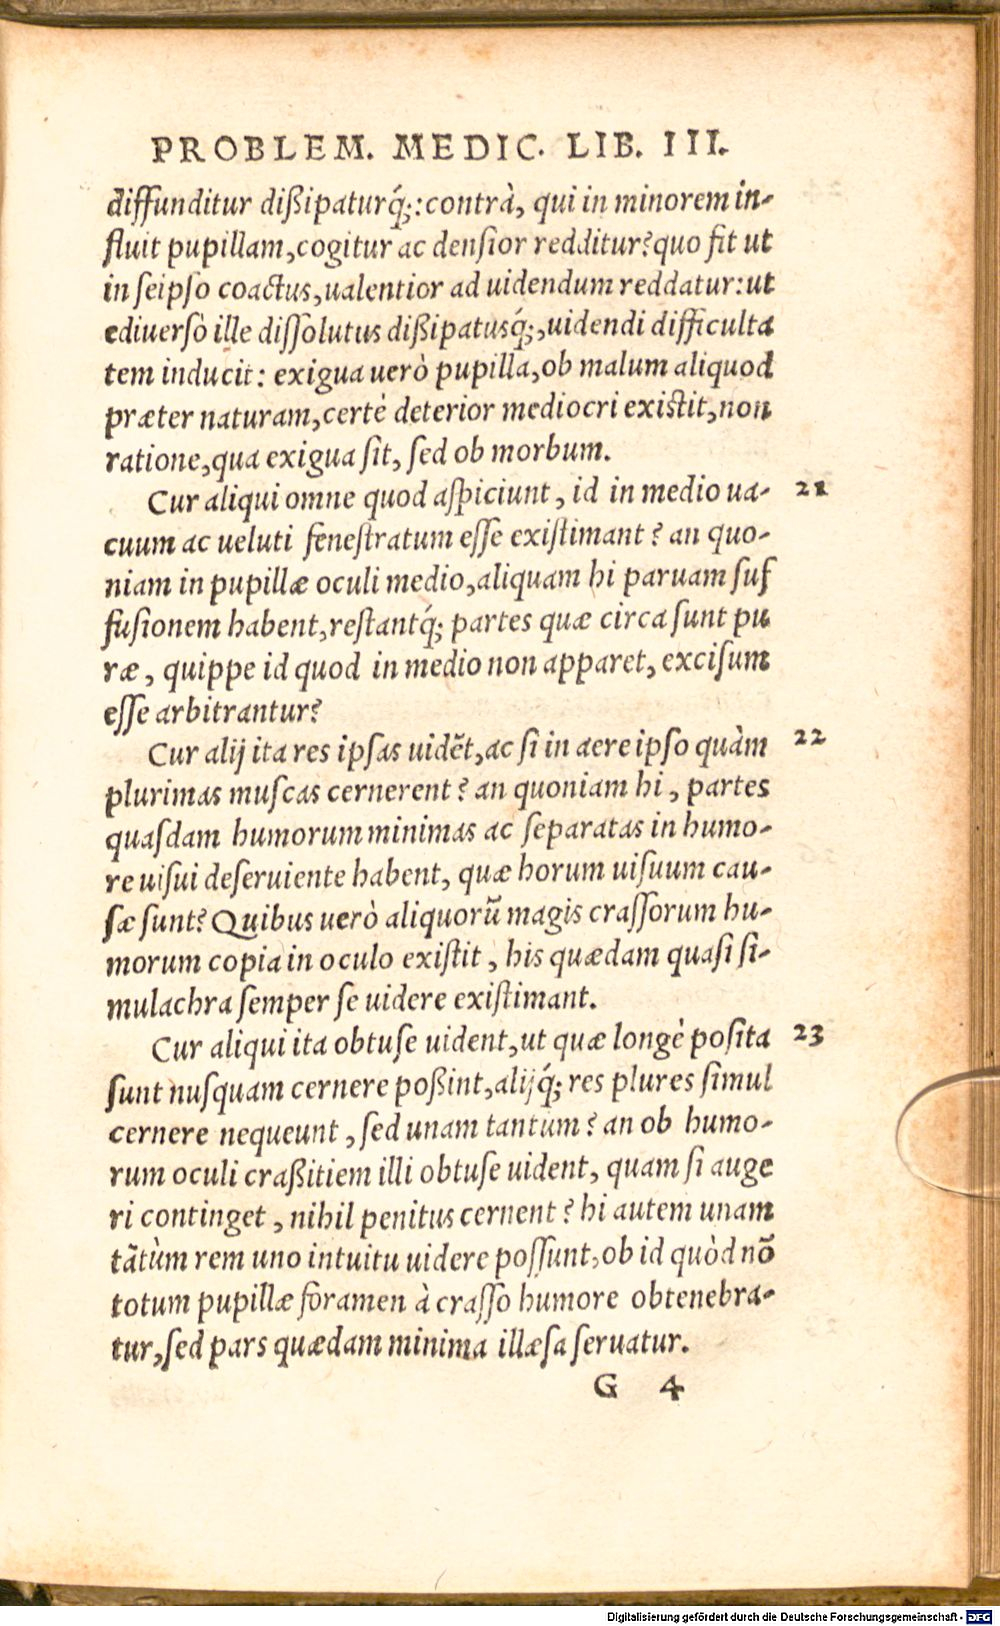 PROBLEM. MEDIC. LIB. III.
diffunditur dißipaturq́;: contrà, qui in minorem in-
fluit pupillam, cogitur ac densior redditur? quo fit ut
in seipso coactus, ualentior ad uidendum reddatur: ut
ediuersò ille dissolutus dißipatusq́;, uidendi difficulta
tem inducit: exigua uerò pupilla, ob malum aliquod
præter naturam, certè deterior mediocri existit, non
ratione, qua exigua sit, sed ob morbum.
Cur aliqui omne quod aspiciunt, id in medio ua- 21
cuum ac ueluti fenestratum esse existimant? an quo-
niam in pupillæ oculi medio, aliquam hi paruam suf
fusionem habent, restantq́; partes quæ circa sunt pu
ræ, quippe id quod in medio non apparet, excisum
esse arbitrantur?
Cur alij ita res ipsas uidẽt, ac si in aere ipso quàm 22
plurimas muscas cernerent? an quoniam hi, partes
quasdam humorum minimas ac separatas in humo-
re uisui deseruiente habent, quæ horum uisuum cau-
sæ sunt? Quibus uerò aliquorũ magis crassorum hu-
morum copia in oculo existit, his quædam quasi si-
mulachra semper se uidere existimant.
Cur aliqui ita obtuse uident, ut quæ longè posita 23
sunt nusquam cernere poßint, alijq́; res plures simul
cernere nequeunt, sed unam tantum? an ob humo-
rum oculi craßitiem illi obtuse uident, quam si auge
ri continget, nihil penitus cernent? hi autem unam
tãtùm rem uno intuitu uidere possunt, ob id quòd nõ
totum pupillæ foramen à crasso humore obtenebra-
tur, sed pars quædam minima illæsa seruatur.
G 4
Digitalisierung gefördert durch die Deutsche Forschungsgemeinschaft - DFG